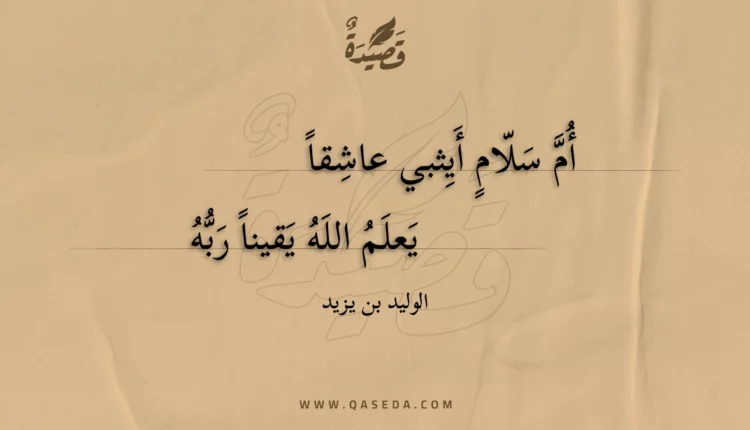 قَصِيْدَةٌ
أُمَّ سَلّامٍ أَيِثبي عاشِقاً
يَعلَمُ اللَهُ يَقيناً رَبُّهُ
الوليد بن يزيد
WWW.QASEDA.COM